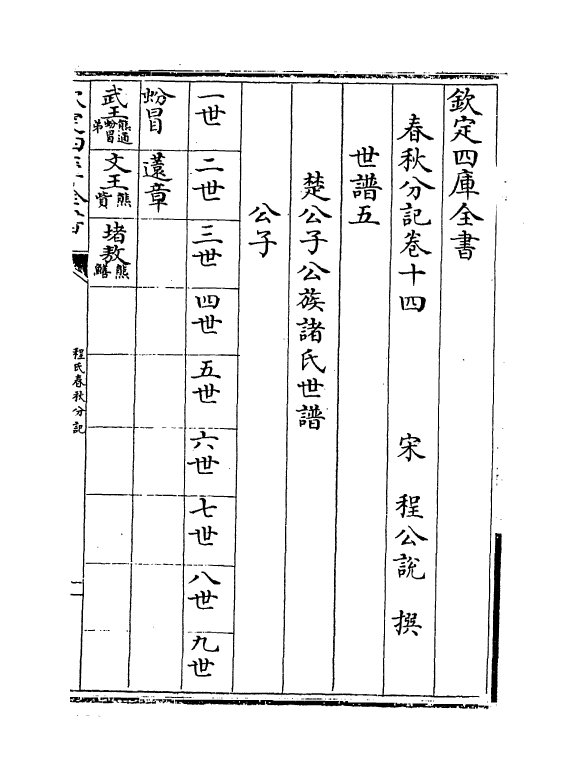 欽定四庫全書
春秋分記卷十四　宋　程公說　撰
世譜五
楚公子公族諸氏世譜
公子
一世　二世　三世　四世　五世　六世　七世　八世　九世
蚡冒　薳章
武王熊通蚡冒弟　文王熊貲　堵敖熊囏
欽定四庫全書
程氏春秋分記